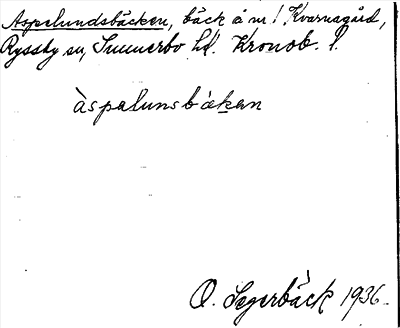 Aspelundsbäcken, bäck å m! Kvarnagård,
Ryssby sn, Sunnerbo hd. Kronob. l.
àspəlunsbäkən
O. Segerbäck 1936.